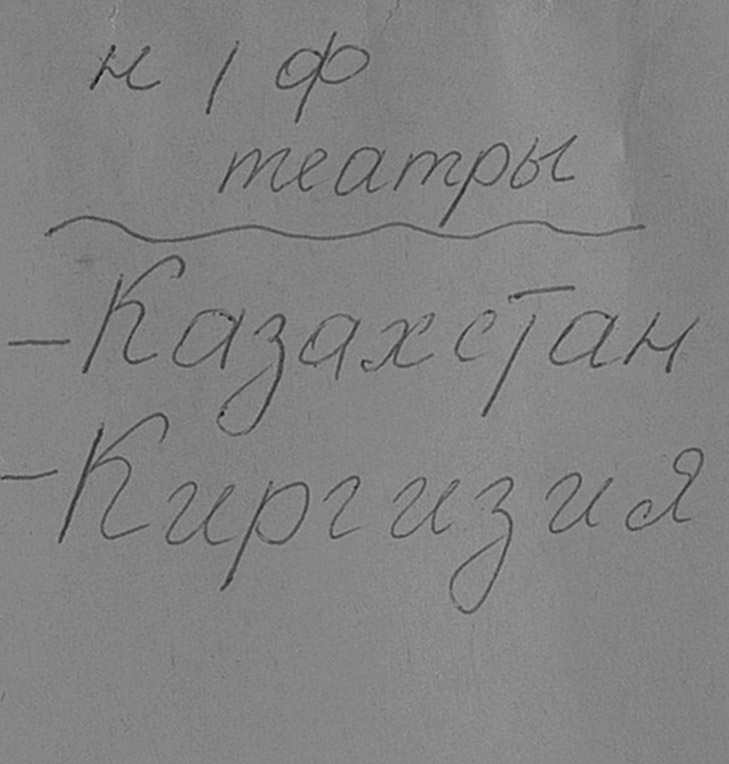 н / ф
театры
- Казахстан
- Киргизия